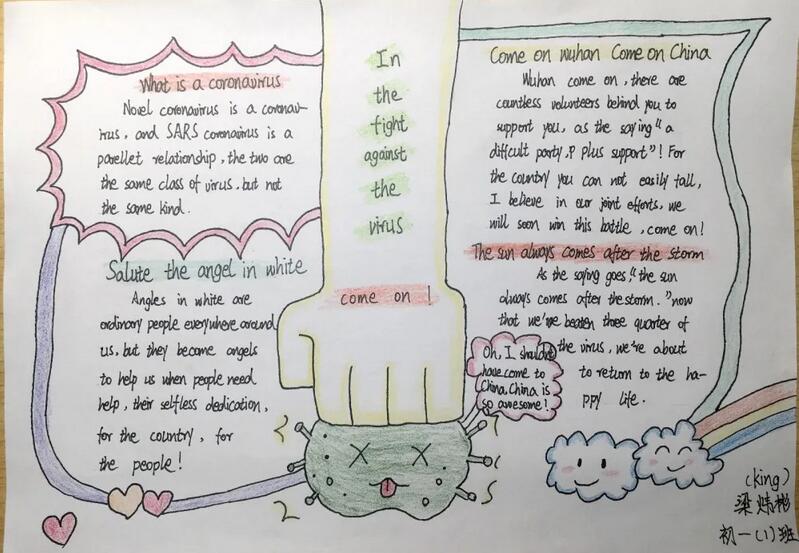 What is a coronavirus
Novel coronavirus is a coronav-
irus, and SARS coronavirus is a
parellet relationship, the two are
the same class of virus. but not
the same kind.
Salute the angel in white
Angles in white are
ordinary people everywhere around
us, but they become angels
to help us when people need
help, their selfless dedication,
for the country, for
the people!
In
the
fight
against
the
virus
come on!
Come on wuhan Come on China
Wuhan come on, there are
countless volunteers behind you to
support you, as the saying "a
difficult party, P Plus support"! For
the country you can not easily fall,
I believe in our joint efforts, we
will soon win this battle, come on!
The sun always comes after the storm
As the saying goes, "the sun
always comes after the storm." now
that we've beaten three quarter of
the virus, we're about
to return to the ha-
ppy life.
Oh, I shouldn't
have come to
China, China is
so awesome!
(king)
梁炜彬
初一(1)班